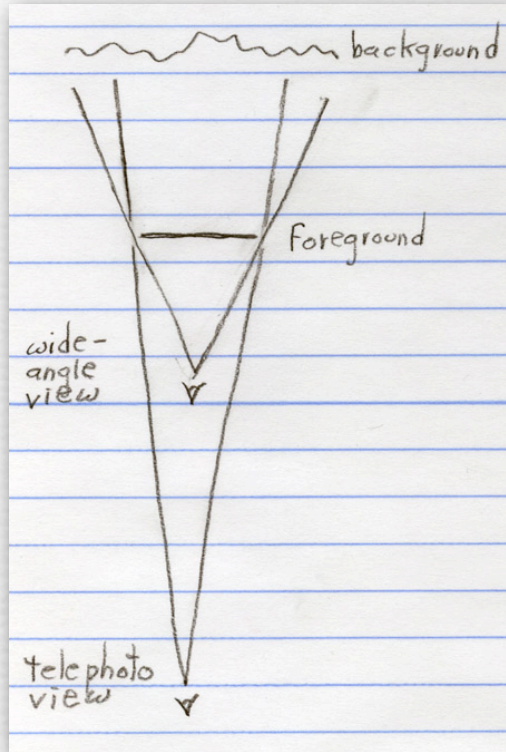 background
Foreground
wide-
angle
view
telephoto
view